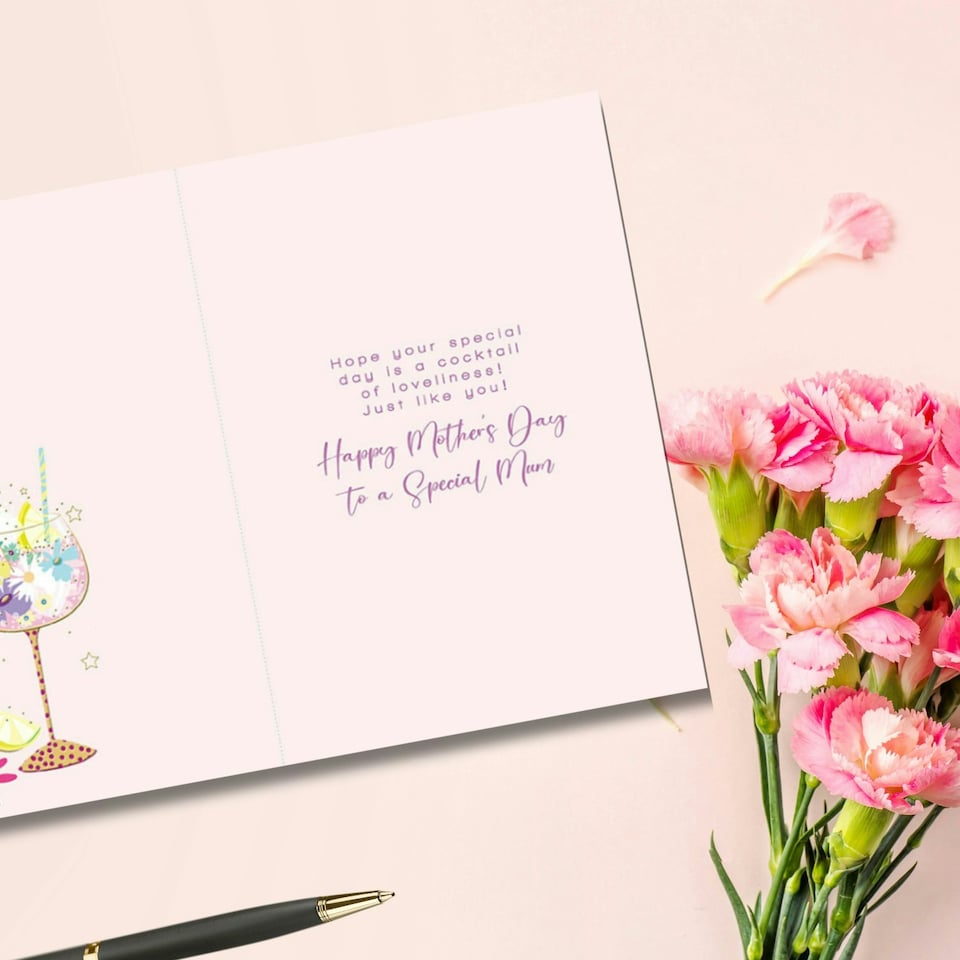 Hope your special
day is a cocktail
of loveliness!
Just like you!
Happy Mother's Day
to a Special Mum